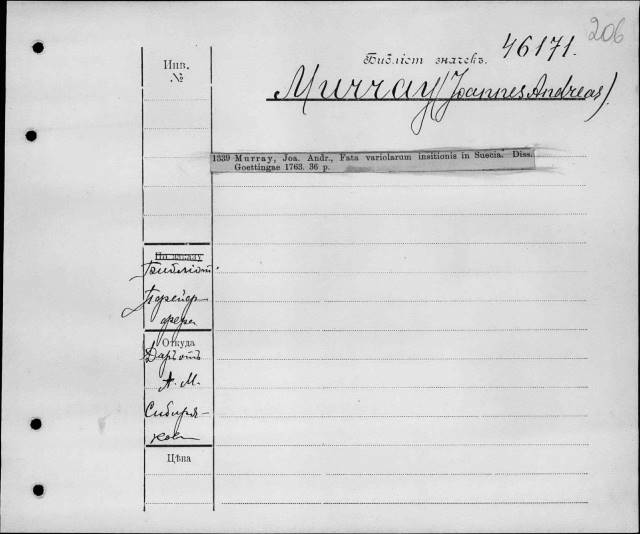 206
Библіот. значекъ. 46171.
Инв.
№
Murray (Joannes Andreas).
1339 Murray, Joa. Andr., Fata variolarum insitionis in Suecia. Diss.
Goettingae 1763. 36 p.
По заказу
Библіот.
Откуда
Даръ отъ
А. М.
Сибиря-
кова
Цѣна